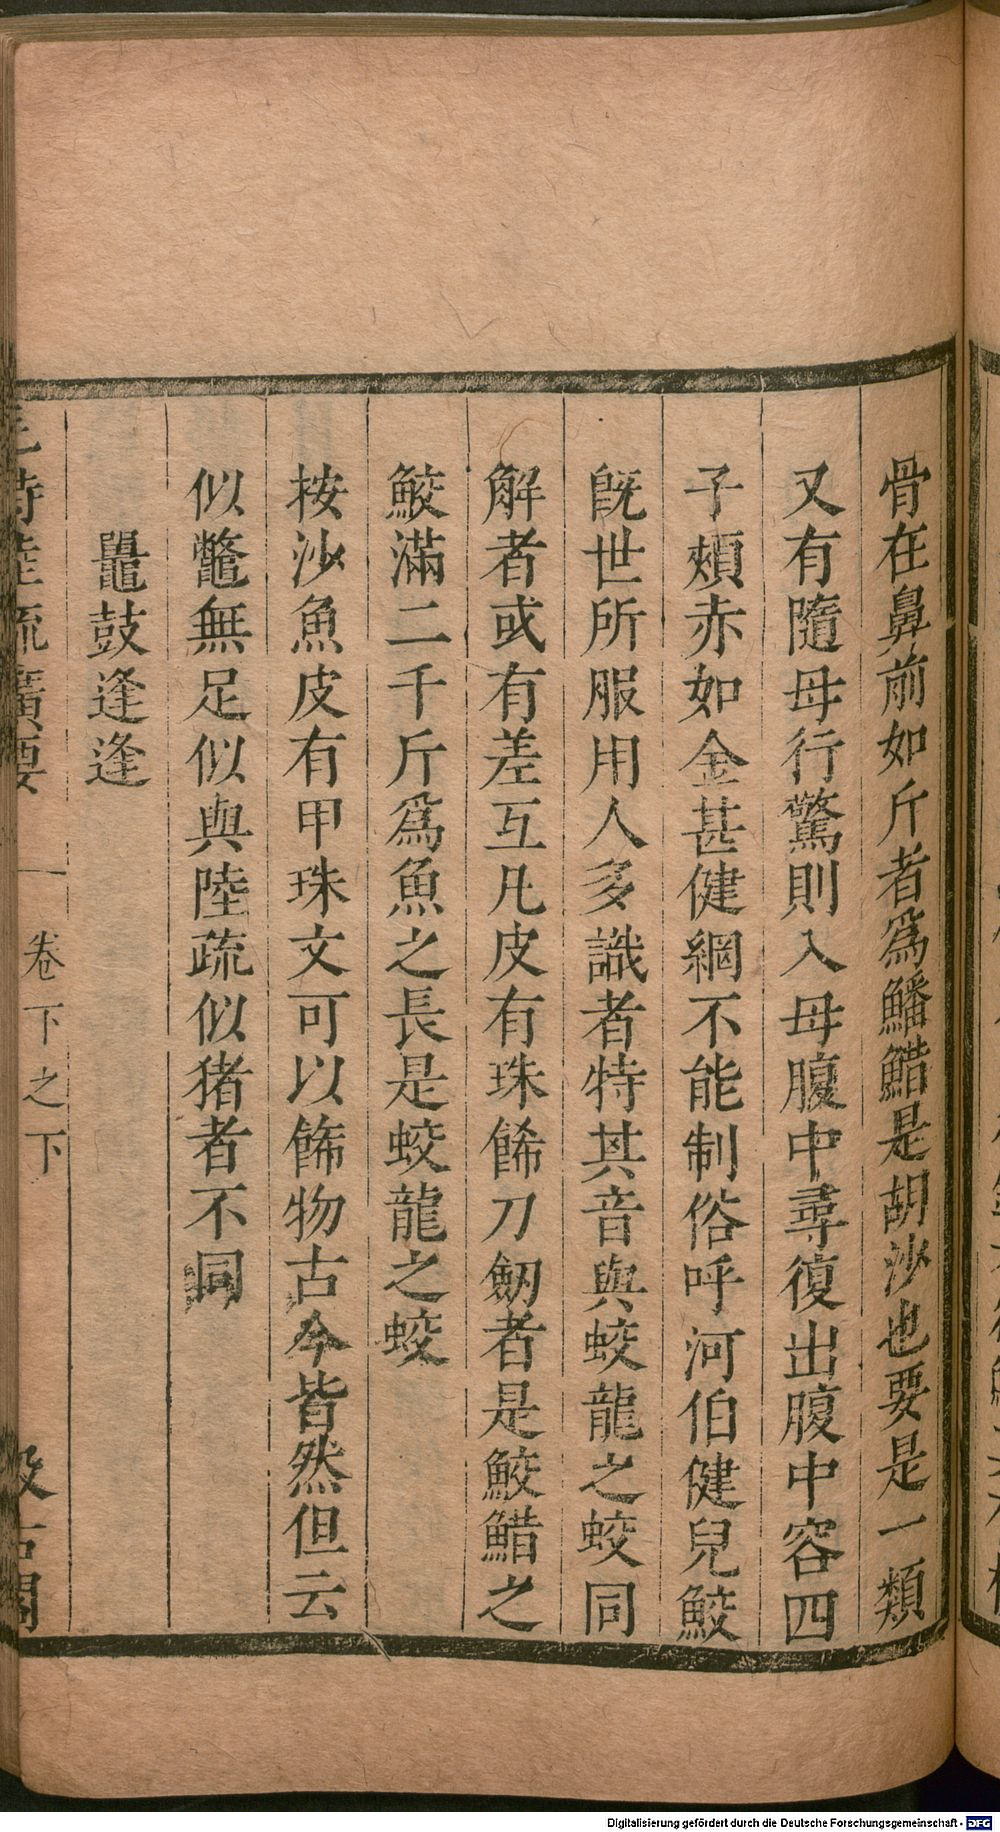 骨在鼻前如斤者爲鱕鯌是胡沙也要是一類
又有隨母行驚則入母腹中尋復出腹中容四
子頰赤如金甚健網不能制俗呼河伯健兒鮫
旣世所服用人多識者特其音與蛟龍之蛟同
解者或有差互凡皮有珠餙刀劒者是鮫鯌之
鮫滿二千斤爲魚之長是蛟龍之蛟
按沙魚皮有甲珠文可以餙物古今皆然但云
似鼈無足似與陸疏似猪者不同
鼉鼓逢逢
毛詩陸疏廣要 卷下之下 汲古閣
Digitalisierung gefördert durch die Deutsche Forschungsgemeinschaft - DFG